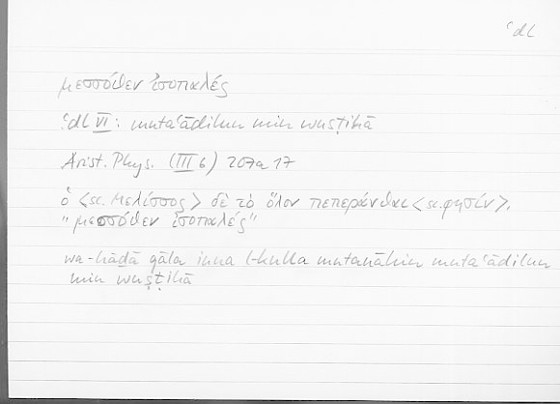 ʿdl
μεσσόθεν ἰσοπαλές
ʿdl VI: mutaʿādilun min wusṭihā
Arist. Phys. (III 6) 207a17
ὁ <sc. Μέλισσος> δὲ τὸ ὅλον πεπεράνθαι <sc. φησίν>,
"μεσσόθεν ἰσοπαλές"
wa-hāḏā qāla inna l-kulla mutanāhin mutaʿādilun
min wusṭihā